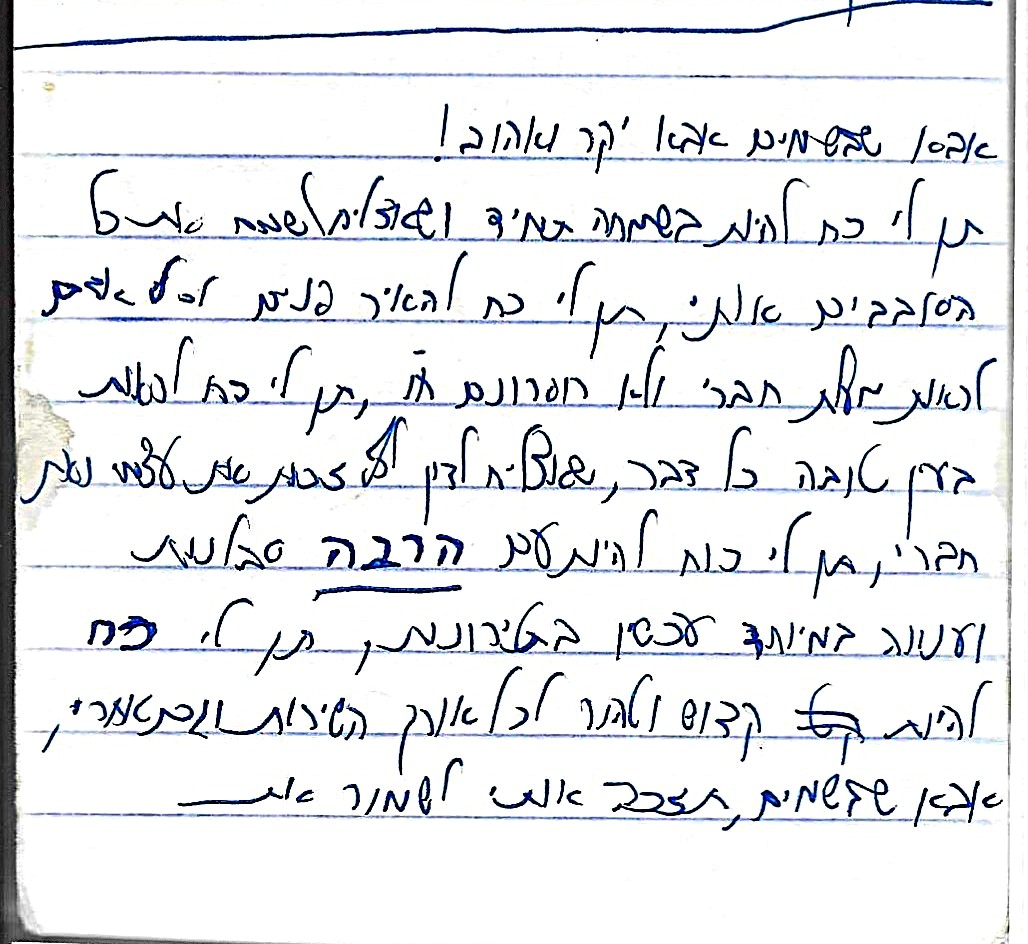 אבא שבשמים אבא יקר ואהוב!
תן לי כח להיות בשמחה תמיד ושאצליח לשמח את כל
הסובבים אותי, תן לי כח להאיר פנים לכל אדם
לראות מעלת חברי ולא חסרונם, תן לי כח לראות
בעין טובה כל דבר, שאצליח לדון לזכות את עצמי ואת
חברי, תן לי כוח להיות עם הרבה סבלנות
וענווה במיוחד עכשיו בטירונות, תן לי כח
להיות קדוש וטהור לכל אורך השירות וגם אחרי,
אבא שבשמים, תזכה אותי לשמור את